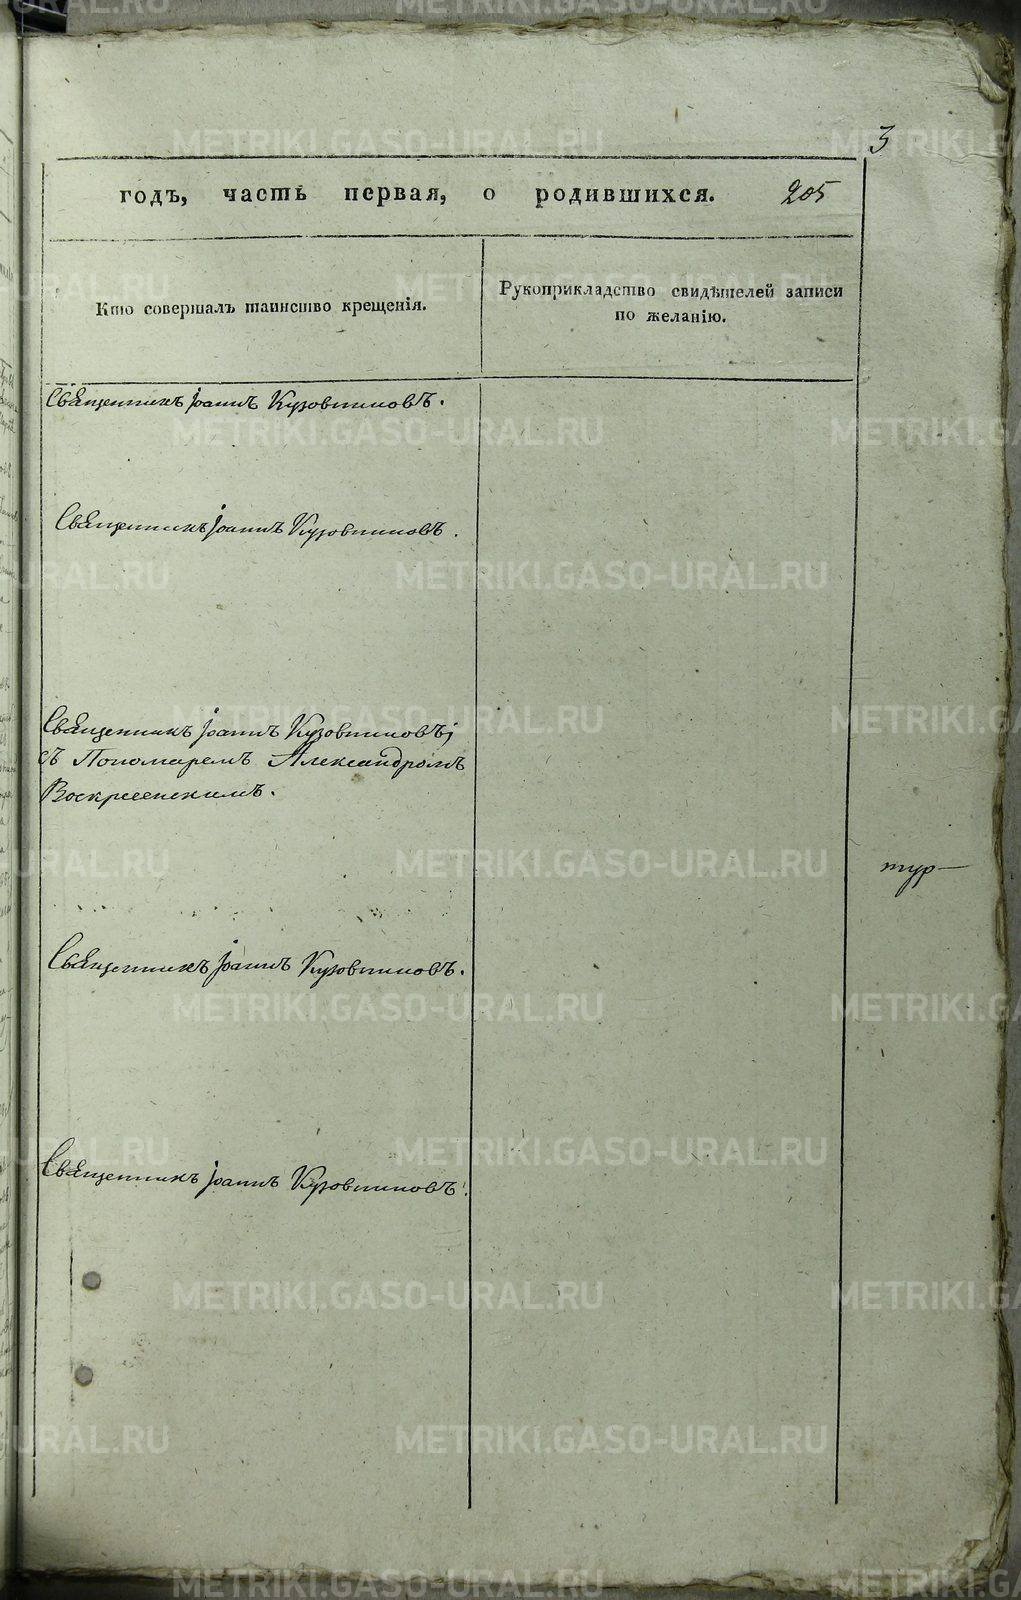 3
годъ, часть первая, о родившихся. 205
Кто совершалъ таинство крещенія.
Рукоприкладство свидѣтелей записи
по желанію.
Священникъ Іоаннъ Кузовниковъ.
Священникъ Іоаннъ Кузовниковъ.
Священникъ Іоаннъ Кузовниковъ;
съ Пономаремъ Александромъ
Воскресенскимъ.
тур—
Священникъ Іоаннъ Кузовниковъ.
Священникъ Іоаннъ Кузовниковъ.
METRIKI.GASO-URAL.RU